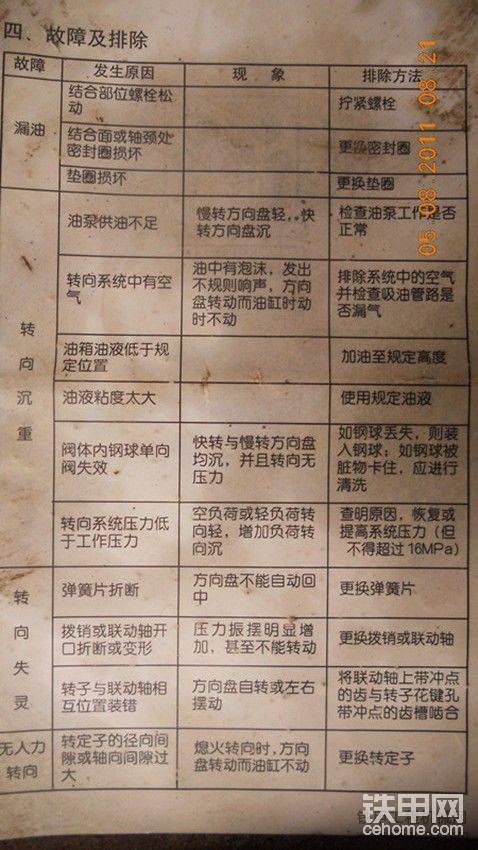 四、故障及排除
故障 发生原因 现 象 排除方法
漏油
结合部位螺栓松
动
拧紧螺栓
结合面或轴颈处
密封圈损坏
更换密封圈
垫圈损坏
更换垫圈
转向沉重
油泵供油不足
慢转方向盘轻，快
转方向盘沉
检查油泵工作是否
正常
转向系统中有空
气
油中有泡沫，发出
不规则响声，方向
盘转动而油缸时动
时不动
排除系统中的空气
并检查吸油管路是
否漏气
油箱油液低于规
定位置
加油至规定高度
油液粘度太大
使用规定油液
阀体内钢球单向
阀失效
快转与慢转方向盘
均沉，并且转向无
压力
如钢球丢失，则装
入钢球；如钢球被
脏物卡住，应进行
清洗
转向系统压力低
于工作压力
空负荷或轻负荷转
向轻，增加负荷转
向沉
查明原因，恢复或
提高系统压力（但
不得超过16MPa）
转向失灵
弹簧片折断
方向盘不能自动回
中
更换弹簧片
拨销或联动轴开
口折断或变形
压力振摆明显增
加，甚至不能转动
更换拨销或联动轴
转子与联动轴相
互位置装错
方向盘自转或左右
摆动
将联动轴上带冲点
的齿与转子花键孔
带冲点的齿槽啮合
无人力
转向
转定子的径向间
隙或轴向间隙过
大
熄火转向时，方向
盘转动而油缸不动
更换转定子
05 08 2011 08 21
铁甲网
cehome.com